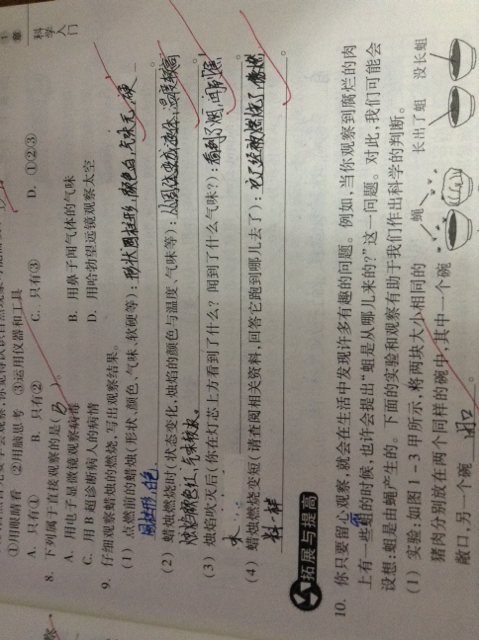 科学入门
①用眼睛看 ②用脑思考 ③运用仪器和工具
A. 只有① B. 只有② C. 只有③ D. ①②③
8. 下列属于直接观察的是( B )。
A. 用电子显微镜观察病毒 B. 用鼻子闻气体的气味
C. 用B超诊断病人的病情 D. 用哈勃望远镜观察太空
9. 仔细观察蜡烛的燃烧,写出观察结果。
(1) 点燃前的蜡烛(形状、颜色、气味、软硬等):形状圆柱形,颜色白,气味无,硬
圆柱形,白色
(2) 蜡烛燃烧时(状态变化,烛焰的颜色与温度、气味等):从固体变成液体,温度较高
(3) 烛焰吹灭后(你在灯芯上方看到了什么?闻到了什么气味?):看到了烟,闻到
味
(4) 蜡烛燃烧变短(请查阅相关资料,回答它跑到哪儿去了):
拓展与提高
10. 你只要留心观察,就会在生活中发现许多有趣的问题。例如,当你观察到腐烂的肉
上有一些蛆的时候,也许会提出“蛆是从哪儿来的?”这一问题。对此,我们可能会
设想:蛆是由蝇产生的。下面的实验和观察有助于我们作出科学的判断。
(1) 实验:如图1-3甲所示,将两块大小相同的
猪肉分别放在两个同样的碗中,其中一个碗
敞口,另一个碗
蝇 长出了蛆 没长蛆